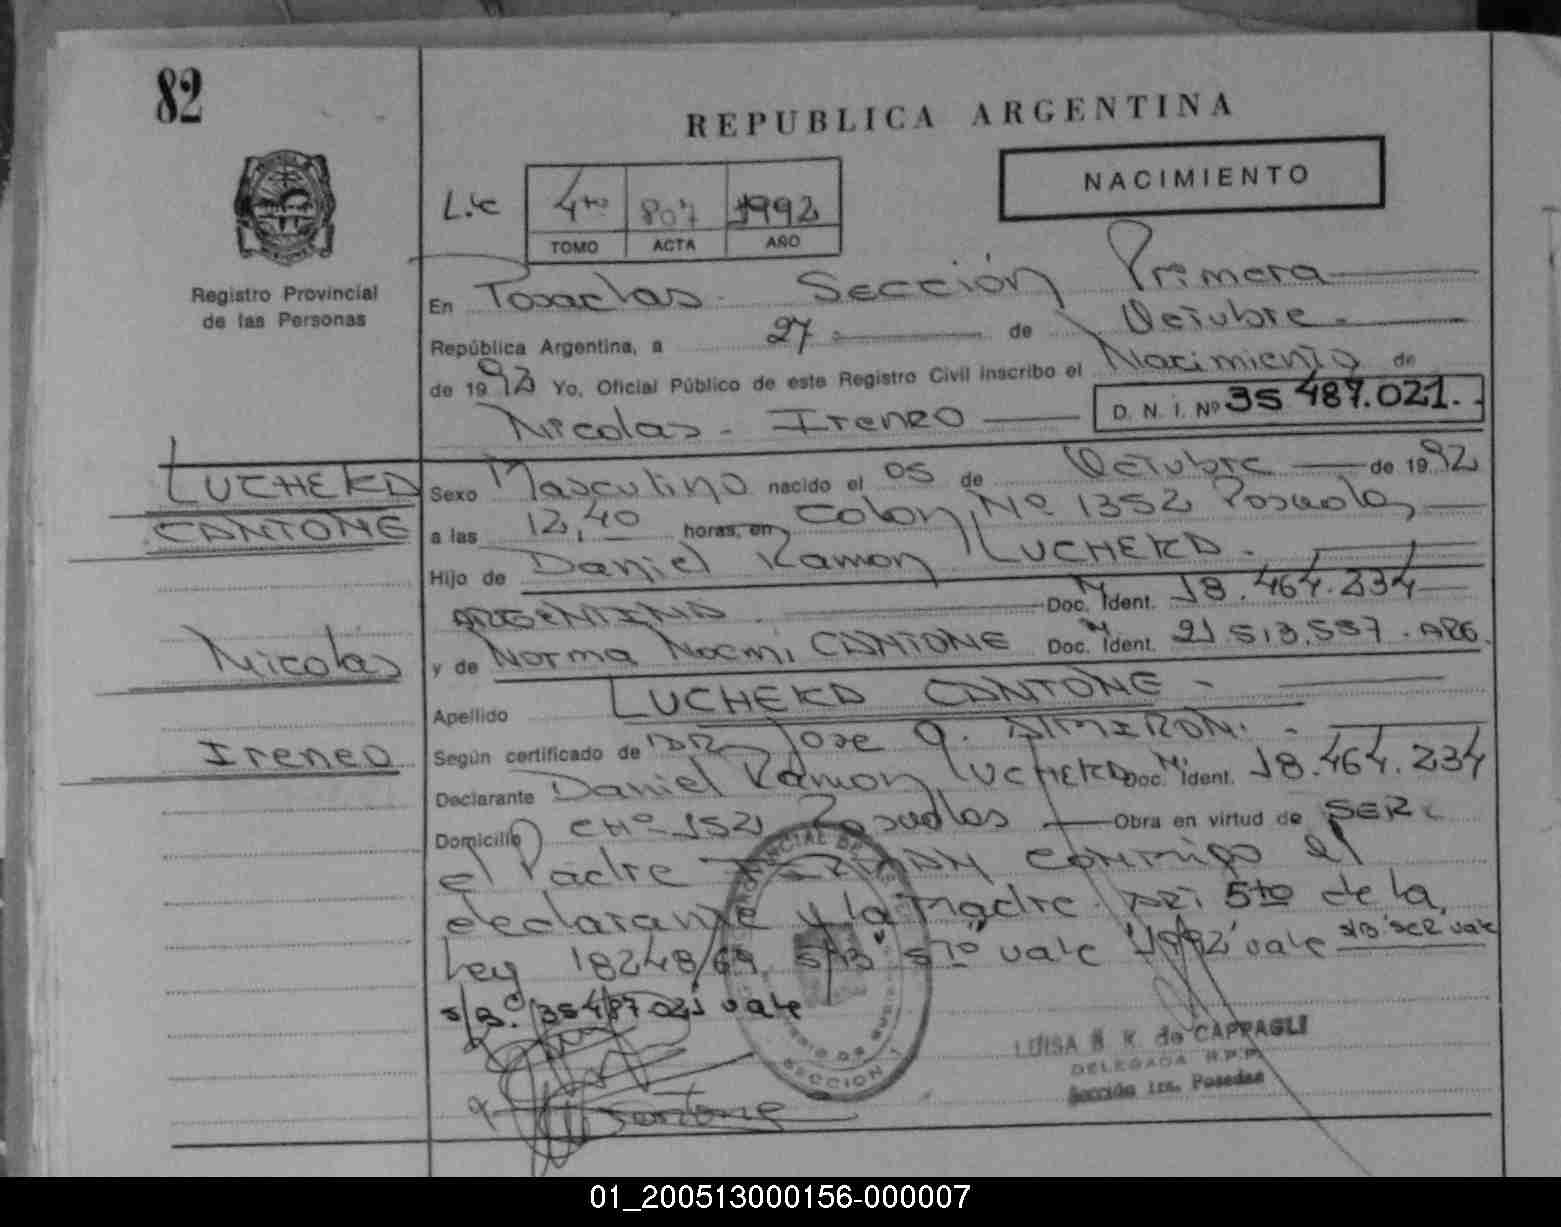 82
REPUBLICA ARGENTINA
NACIMIENTO
4to 807 1992
TOMO ACTA AÑO
Registro Provincial
de las Personas
En Posadas - Sección Primera
República Argentina, a 27 de Octubre
de 1992 Yo, Oficial Público de este Registro Civil inscribo el Nacimiento de
Nicolas - Ireneo D. N. I. Nº 35 487.021.
LUCHEKO
CANTONE
Nicolas
Ireneo
Sexo Masculino nacido el 05 de Octubre de 1992
a las 12,40 horas, en Colon Nº 1352 Posadas
Hijo de Daniel Ramon LUCHEKO.
ARGENTINO Doc. M. Ident. 18.464.234
y de Norma Noemi CANTONE Doc. M. Ident. 21 513.557. ARG.
Apellido LUCHEKO CANTONE -
Según certificado de DR Jose A. ALMIRON. -
Declarante Daniel Ramon LUCHEKO Doc. M. Ident. 18.464.234
Domicilio CHº 152 Posadas Obra en virtud de SER
el Padre FIRMAN conmigo el
declarante y la madre. Art 5to de la
Ley 18248/69. S/B "5to" vale "1992" vale S/B "SER" vale
s/B. "35487.021" vale
Cantone
PROVINCIAL DE LAS
SECCION 1
LUISA B. K. de CAPPAGLI
DELEGADA R.P.P.
Sección 1ra. Posadas
01_200513000156-000007